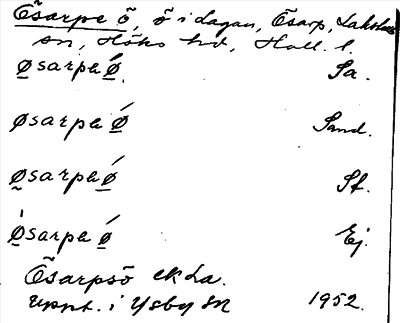 Õsarpe õ, ö i Lagan, Õsarp, Laholms
sn, Höks hd, Hall. l.
ø̱sarpəǿ̱. Sa.
øsarpəǿ̱ Sand.
ø̱sarpəǿ̱ Sf.
ǿ̱sarpəǿ̱ Ej.
Õsarpsõ ek La.
uppt. i Ysby sn 1952.